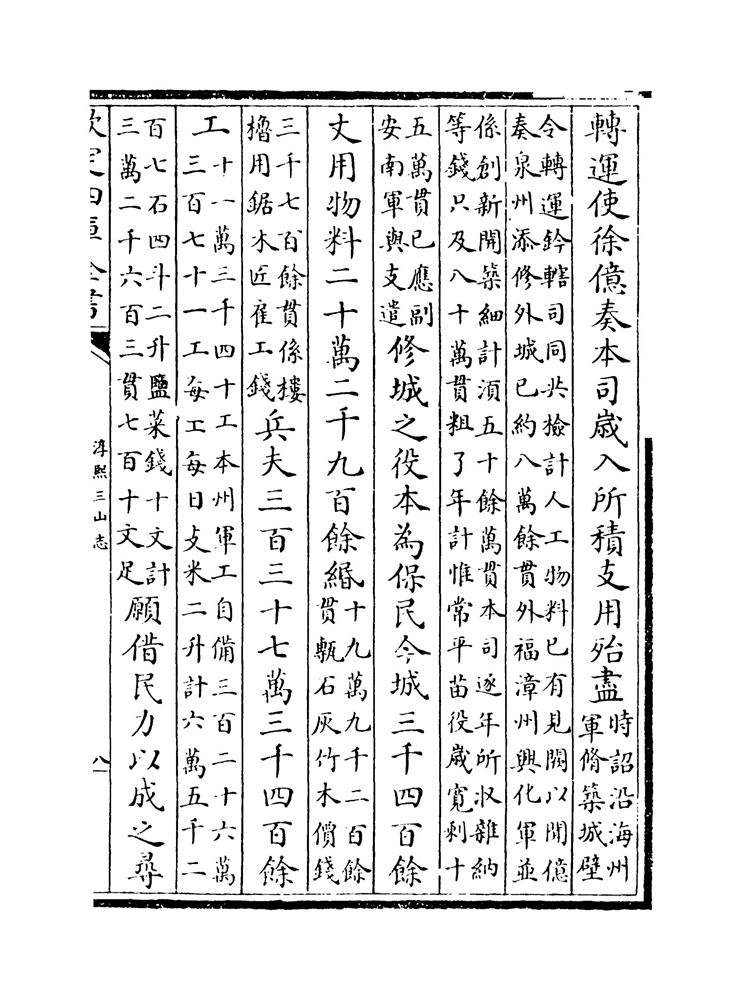 轉運使徐億奏本司歲入所積支用殆盡
時詔沿海州
軍脩築城壁
令轉運鈐轄司同共撿計人工物料已有見闕以聞億
奏泉州添修外城已約八萬餘貫外福漳州興化軍並
係創新開築細計湏五十餘萬貫本司逐年所收雜納
等錢只及八十萬貫粗了年計惟常平苗役歲寛剩十
五萬貫已應副
安南軍與支遣
修城之役本為保民今城三千四百餘
丈用物料二十萬二千九百餘緡
十九萬九千二百餘
貫甎石灰竹木價錢
三千七百餘貫係樓
櫓用鋸木匠雇工錢
兵夫三百三十七萬三千四百餘
工
十一萬三千四十工本州軍工自備三百二十六萬
三百七十一工每工每日支米二升計六萬五千二
百七石四斗二升鹽菜錢十文計
三萬二千六百三貫七百十文足
願借民力以成之尋
欽定四庫全書
淳熙三山志
八